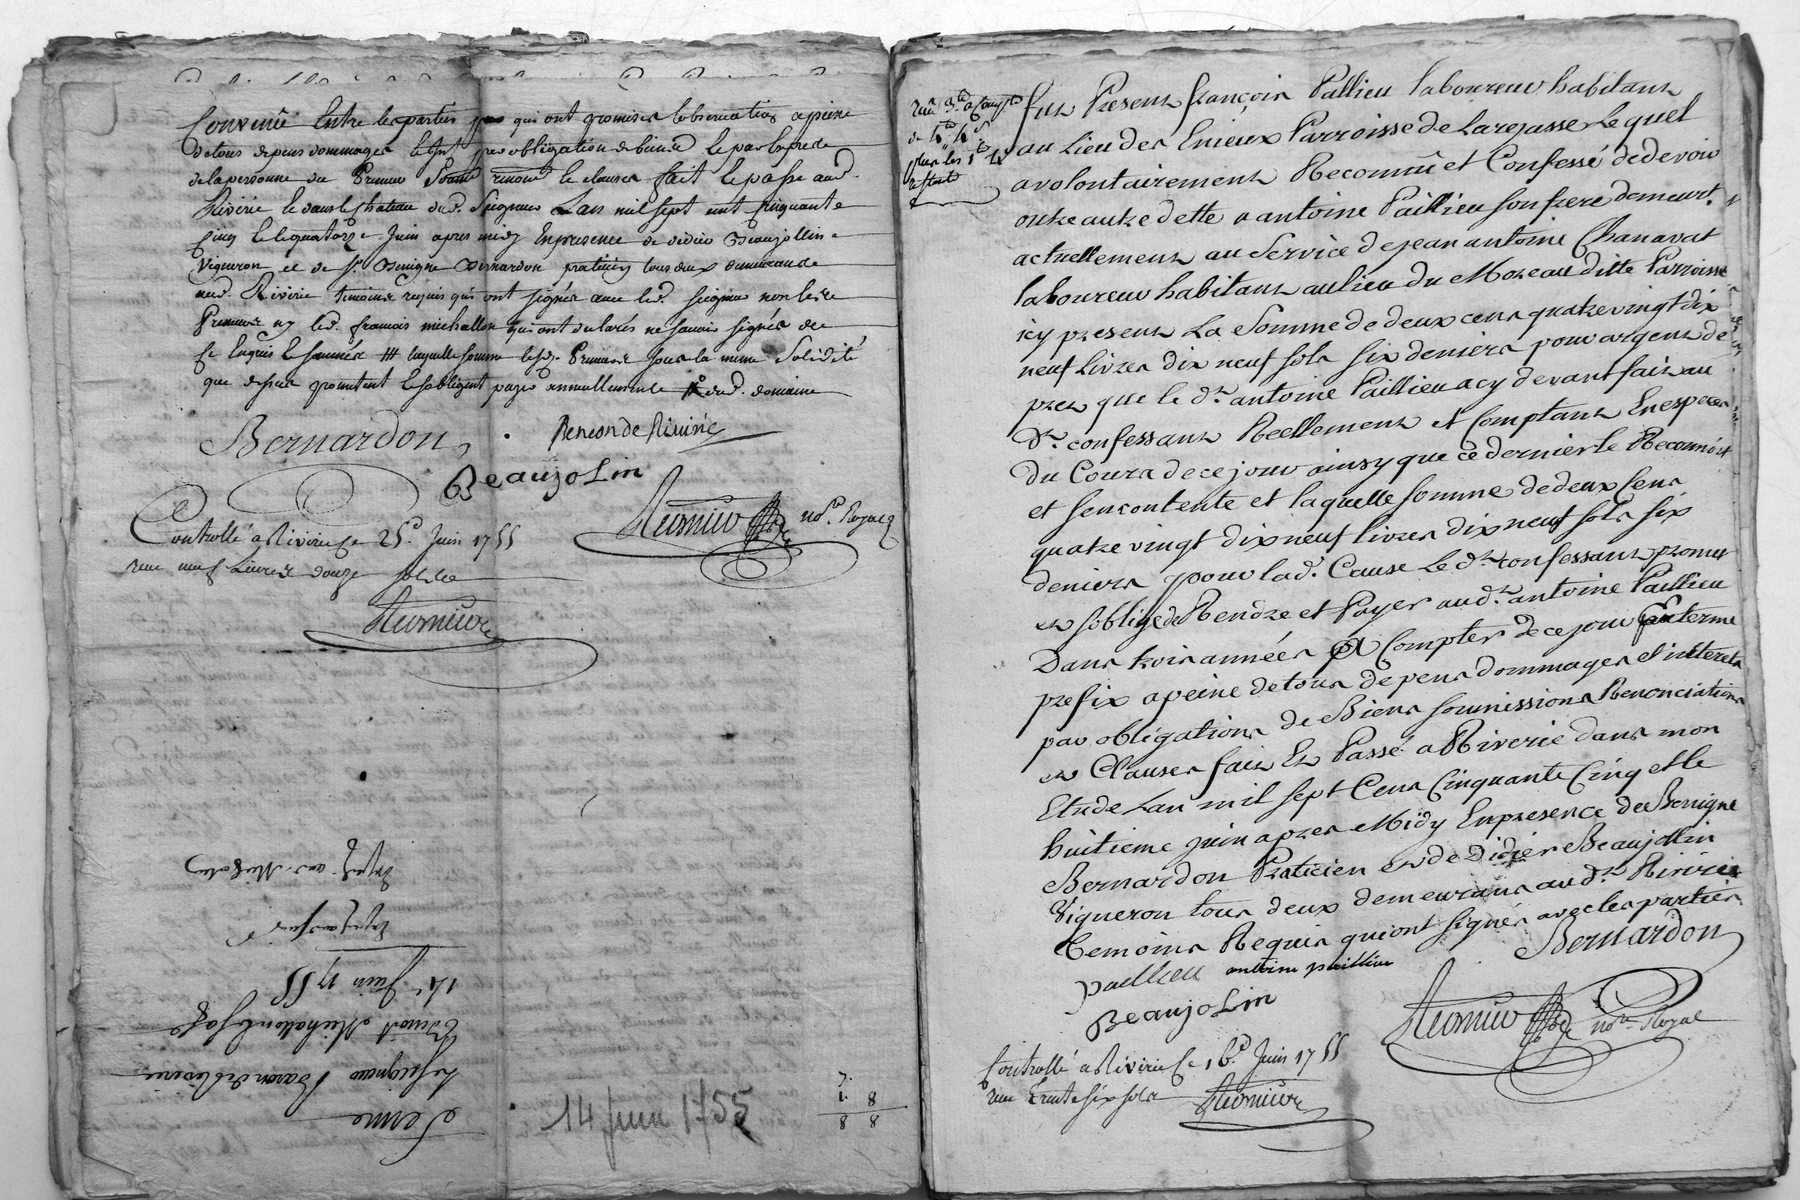 Convenûe Entre les parties qui ont promis l'observation a peine
de tous depens dommages obligation de biens
de la personne des Preneurs renon.d le clauses fait le passe aud.
Riviríe le dans le Chateau dud. Seigneur Lan mil sept cent cinquante
Cinq le quatorze Juin apres midy En presence de didier Beaujollin
Vigneron et de Sr. Benigne Bernardon praticien tous deux demeurans
aud. Riviríe temoins requis qui ont signés avec led. seigneur non lesd.
Preneurs ny led. francois michallon qui ont declarés ne savoir signés de
ce Enquis laquelle somme lesd. Preneurs sous la meme Solidité
que dessus promettent le sobligent payer annuellement dud. domaine
Bernardon
Rencon de Riviríe
Beaujolin
not.re Royal
Controllé a Riviríe ce 25.e Juin 1755
reçu neuf Livres douze sols
Ferme
Le seigneur Baron de Riviríe
Benoit Michallon
14e Juin 1755
Exp.
Exp.
14 Juin 1755
7.
1. 8
8 8
restent
fut Present françois Pallieu laboureur habitant
au Lieu des Enieux Parroisse de Larajasse Lequel
a volontairement Reconnû et Confessé de devoir
outre autre dette a antoine Paillieu son frere demeurt.
actuellement au Service de jean antoine Chanavat
laboureur habitant au lieu du Moreau ditte Parroisse
icy present La Somme de deux cens quatre vingt dix
neuf Livres dix neuf sols six deniers pour argent de
prez que le dt. antoine Paillieu a cy devant fait au
dt. confessant Reellement et Comptant En especes
du Cours de ce jour ainsy que ce dernier le Reconnoit
et sen contente et laquelle somme de deux Cens
quatre vingt dix neuf livres dix neuf sols six
deniers pour lad. Cause Le dt. confessant promet
et soblige de Rendre et Payer audt. antoine Paillieu
Dans trois années A Compter de ce jour terme
prefix a peine de tous depens dommages et interets
par obligations de Biens soumissions Renonciations
et Clauses fait Et Passé a Riverie dans mon
Etude Lan mil sept Cens Cinquante Cinq et le
huitieme juin apres Midy En presence de Benigne
Bernardon Praticien et de Didier Beaujollin
Vigneron tous deux demeurans audt. Riviríe
Temoins Requis qui ont signés avec les parties
paillieu antoine paillieu Bernardon
Beaujolin
not.re Royal
Controllé a Riviríe ce 16.e Juin 1755
reçu Trente six sols